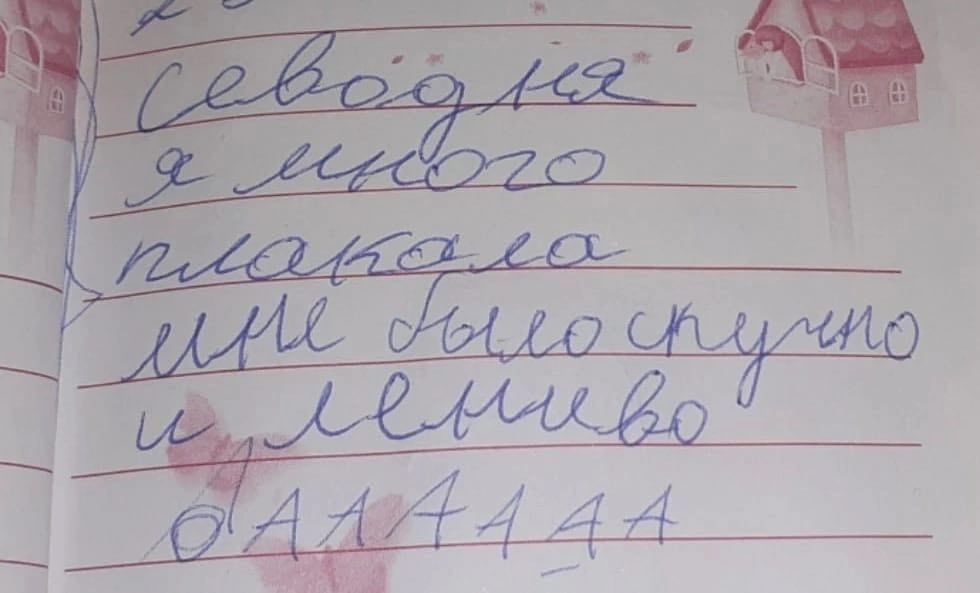 севодня
я много
плакала
мне было скучно
и лениво
аААААААА